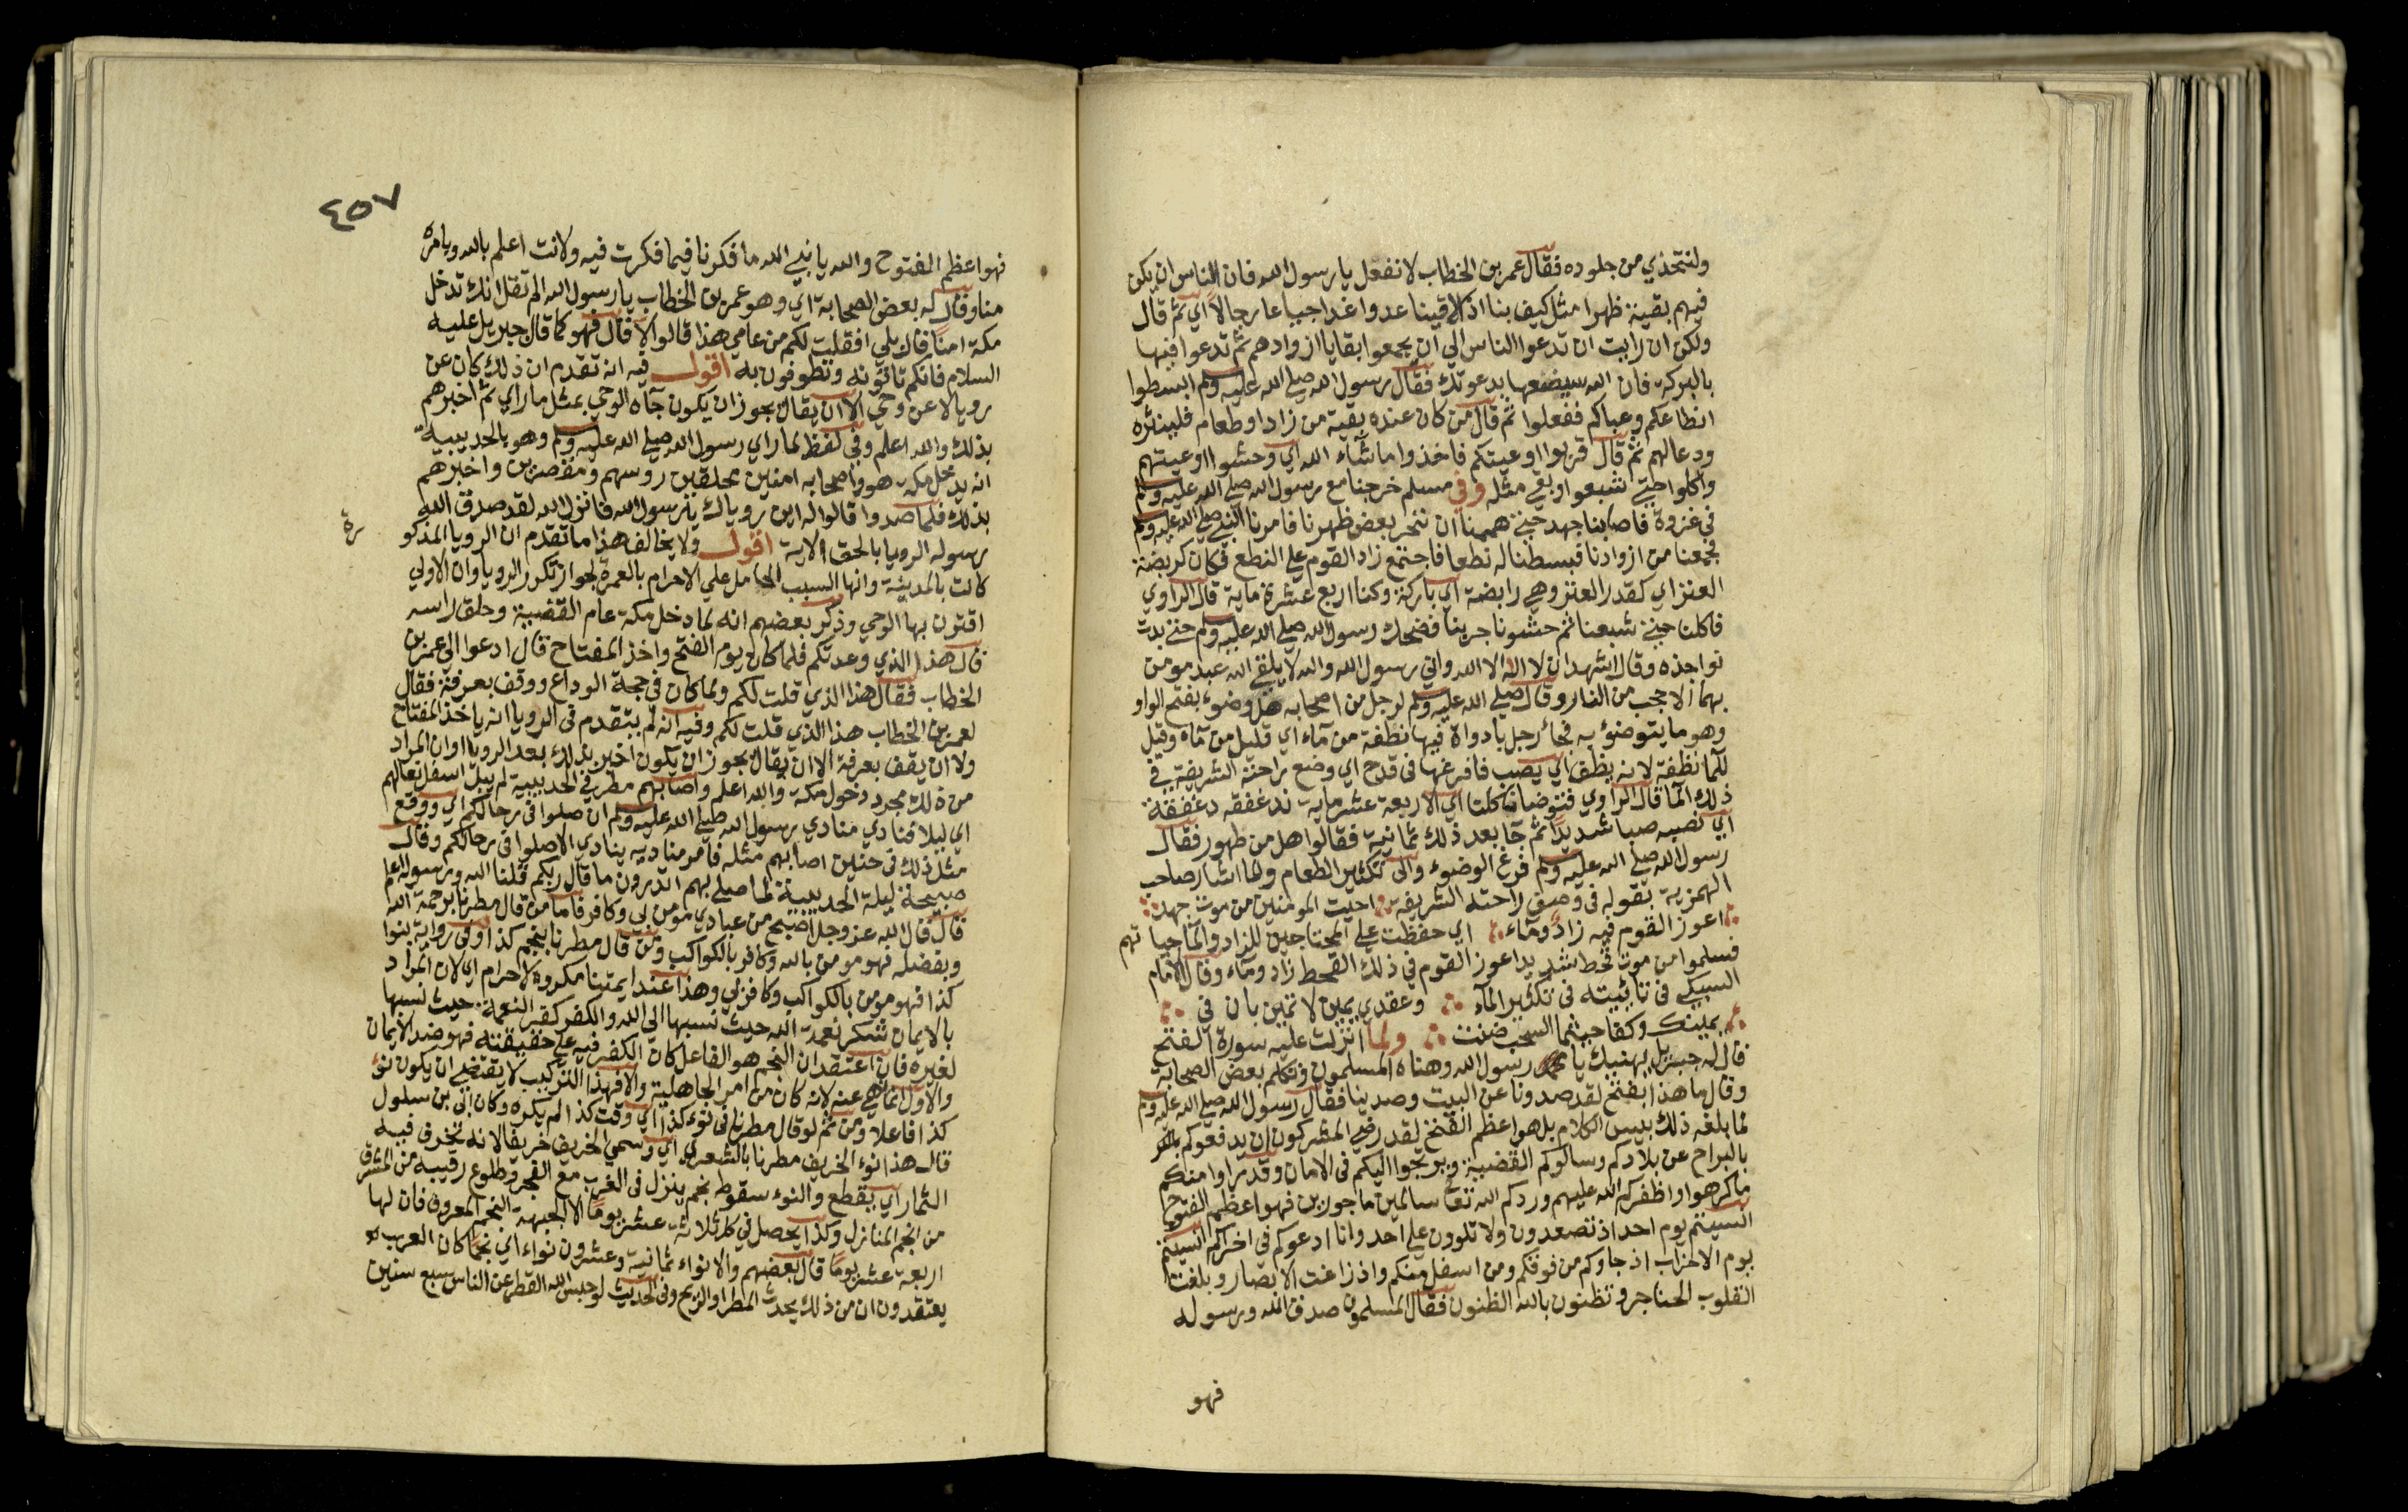 ولنتخذي من جلوده فقال عمر بن الخطاب لا تفعل يا رسول الله فان الناس ان يكن
فيهم بقية ظهرا مثل كيف بنا اذا لاقينا عدوا غدا جياعا رجالا اي ثم قال
ولكن ان رايت ان تدعوا الناس الي ان يجمعوا بقايا ازوادهم ثم تدعوا فيها
بالبركة فان الله سيضعها بدعوتك فقال رسول الله صلي الله عليه وسلم ابسطوا
انطاعكم وعباكم ففعلوا ثم قال من كان عنده بقية من زاد او طعام فلينثره
ودعا لهم ثم قال قربوا اوعيتكم فاخذوا ما شآء الله اي وحشوا اوعيتهم
واكلوا حتي شبعوا وبقي مثله وفي مسلم خرجنا مع رسول الله صلي الله عليه وسلم
في غزوة فاصابنا جهد حتي هممنا ان ننحر بعض ظهرنا فامرنا النبي صلي الله عليه وسلم
فجمعنا من ازوادنا فبسطنا له نطعا فاجتمع زاد القوم علي النطع فكان كربضة
العنز اي كقدر العنز وهي رابضة اي باركة وكنا اربع عشرة ماية قال الراوي
فاكلنا حتي شبعنا ثم حشونا جربنا فضحك رسول الله صلي الله عليه وسلم حتي بدت
نواجذه وقال اشهد ان لا اله الا الله واني رسول الله والله لا يلقي الله عبد مومن
بهما الا حجب من النار وقال صلي الله عليه وسلم لرجل من اصحابه هل وضوء بفتح الواو
وهو ما يتوضؤ به فجأ رجل بادواة فيها نطفة من مآء اي قليل من مآء وقيل
للمآ نطفة لانه ينطف اي يصب فافرغها في قدح اي وضع راحته الشريفة في
ذلك المآ قال الراوي فتوضانا كلنا اي الاربعة عشر ماية ندغفقه دغفقة
اي نصبه صبا شديدا ثم جآ بعد ذلك ثمانية فقالوا هل من طهور فقال
رسول الله صلي الله عليه وسلم فرغ الوضوء والي تكثير الطعام والمآ اشار صاحب
الهمزية بقوله في وصف راحته الشريفة احيت المومنين من موت جهد
اعوز القوم فيه زاد ومآء اي حفظت علي المحتاجين للزاد والمآ حياتهم
فسلموا من موت قحط شديد اعوز القوم في ذلك القحط زاد ومآء وقال الامام
السبكي في تائيته في تكثير المآء وعندي يمين لا تمين بان في
يمينك وكفا حيثما السحب ضنت ولما انزلت عليه سورة الفتح
قال له جبريل يهنيك يا رسول الله وهناه المسلمون وتكلم بعض الصحابة
وقال ما هذا بفتح لقد صدونا عن البيت وصد هدينا فقال رسول الله صلي الله عليه وسلم
لما بلغه ذلك بيس الكلام بل هو اعظم الفتح لقد رضي المشركون ان يدفعوكم
بالبراح عن بلادكم وسالوكم القضية ويرجوا اليكم في الامان وقد راوا منكم
ما كرهوا واظفركم الله عليهم وردكم الله تعالي سالمين ماجورين فهو اعظم الفتوح
انسيتم يوم احد اذ تصعدون ولا تلوون علي احد وانا ادعوكم في اخراكم انسيتم
يوم الاحزاب اذ جاوكم من فوقكم ومن اسفل منكم واذ زاغت الابصار وبلغت
القلوب الحناجر وتظنون بالله الظنون فقال المسلمون صدق الله ورسوله
فهو
٤٥٧
فهو اعظم الفتوح والله يا نبي الله ما فكرنا فيما فكرت فيه ولانت اعلم بالله وبامره
منا وقال له بعض الصحابة اي وهو عمر بن الخطاب يا رسول الله الم تقل انك تدخل
مكة امنا قال بلي افقلت لكم من عامي هذا قالوا لا قال فهو كما قال جبريل عليه
السلام فانكم تاتونه وتطوفون به اقول فيه انه تقدم ان ذلك كان عن
رويا لا عن وحي الا ان يقال يجوز ان يكون جآه الوحي بمثل ما راي ثم اخبرهم
بذلك والله اعلم وفي لفظ لما راي رسول الله صلي الله عليه وسلم وهو بالحديبية
انه يدخل مكة هو واصحابه امنين محلقين روسهم ومقصرين واخبرهم
بذلك فلما صدوا قالوا له اين روياك يا رسول الله فانزل الله لقد صدق الله
رسوله الرويا بالحق الاية اقول ولا يخالف هذا ما تقدم ان الرويا المذكورة
كانت بالمدينة وانها السبب الحامل علي الاحرام بالعمرة لجواز تكرر الرويا وان الاولي
اقترن بها الوحي وذكر بعضهم انه لما دخل مكة عام القضية وحلق راسه
قال هذا الذي وعدتكم فلما كان يوم الفتح واخذ المفتاح قال ادعوا الي عمر بن
الخطاب فقال هذا الذي قلت لكم ولما كان في حجة الوداع ووقف بعرفة فقال
لعمر بن الخطاب هذا الذي قلت لكم وفيه انه لم يتقدم في الرويا انه ياخذ المفتاح
ولا ان يقف بعرفة الا ان يقال يجوز ان يكون اخبر بذلك بعد الرويا او ان المراد
من ذلك مجرد دخول مكة والله اعلم واصابهم مطر في الحديبية لم يبل اسفل نعالهم
اي ليلا فنادي منادي رسول الله صلي الله عليه وسلم ان صلوا في رحالكم اي ووقع
مثل ذلك في حنين اصابهم مثله فامر مناديه ينادي الا صلوا في رحالكم وقال
صبيحة ليلة الحديبية لما صلي بهم اتدرون ما قال ربكم قلنا الله ورسوله اعلم
قال قال الله عز وجل اصبح من عبادي مومن بي وكافر فاما من قال مطرنا برحمة الله
وبفضله فهو مومن بالله وكافر بالكواكب ومن قال مطرنا بنجم كذا وفي رواية بنوا
كذا فهو مومن بالكواكب وكافر بي وهذا عند ايمتنا مكروه لا حرام اي لان المراد
بالايمان شكر نعمة الله حيث نسبها الي الله والكفر كفر النعمة حيث نسبها
لغيره فان اعتقد ان النجم هو الفاعل كان الكفر فيه علي حقيقته فهو ضد الايمان
والاول انما نهي عنه لانه كان من امر الجاهلية والا فهذا التركيب لا يقتضي ان يكون نوء
كذا فاعلا ومن ثم لو قال مطرنا في نوء كذا اي وقت كذا لم يكره وكان ابي بن سلول
قال هذا نوء الخريف مطرنا بالشعري اي وسمي الخريف خريفا لانه تخرف فيه
الثمار اي تقطع والنوء سقوط نجم ينزل في الغرب مع الفجر وطلوع رقيبه من المشرق
من انجم المنازل وكذا يحصل في كل ثلاثة عشر يوما الا الجبهة النجم المعروف فان لها
اربعة عشر يوما قال بعضهم والانواء ثمانية وعشرون نواء اي نجما كان العرب
يعتقدون ان من ذلك يحدث المطر او الريح وفي الحديث لو حبس الله القطر عن الناس سبع سنين